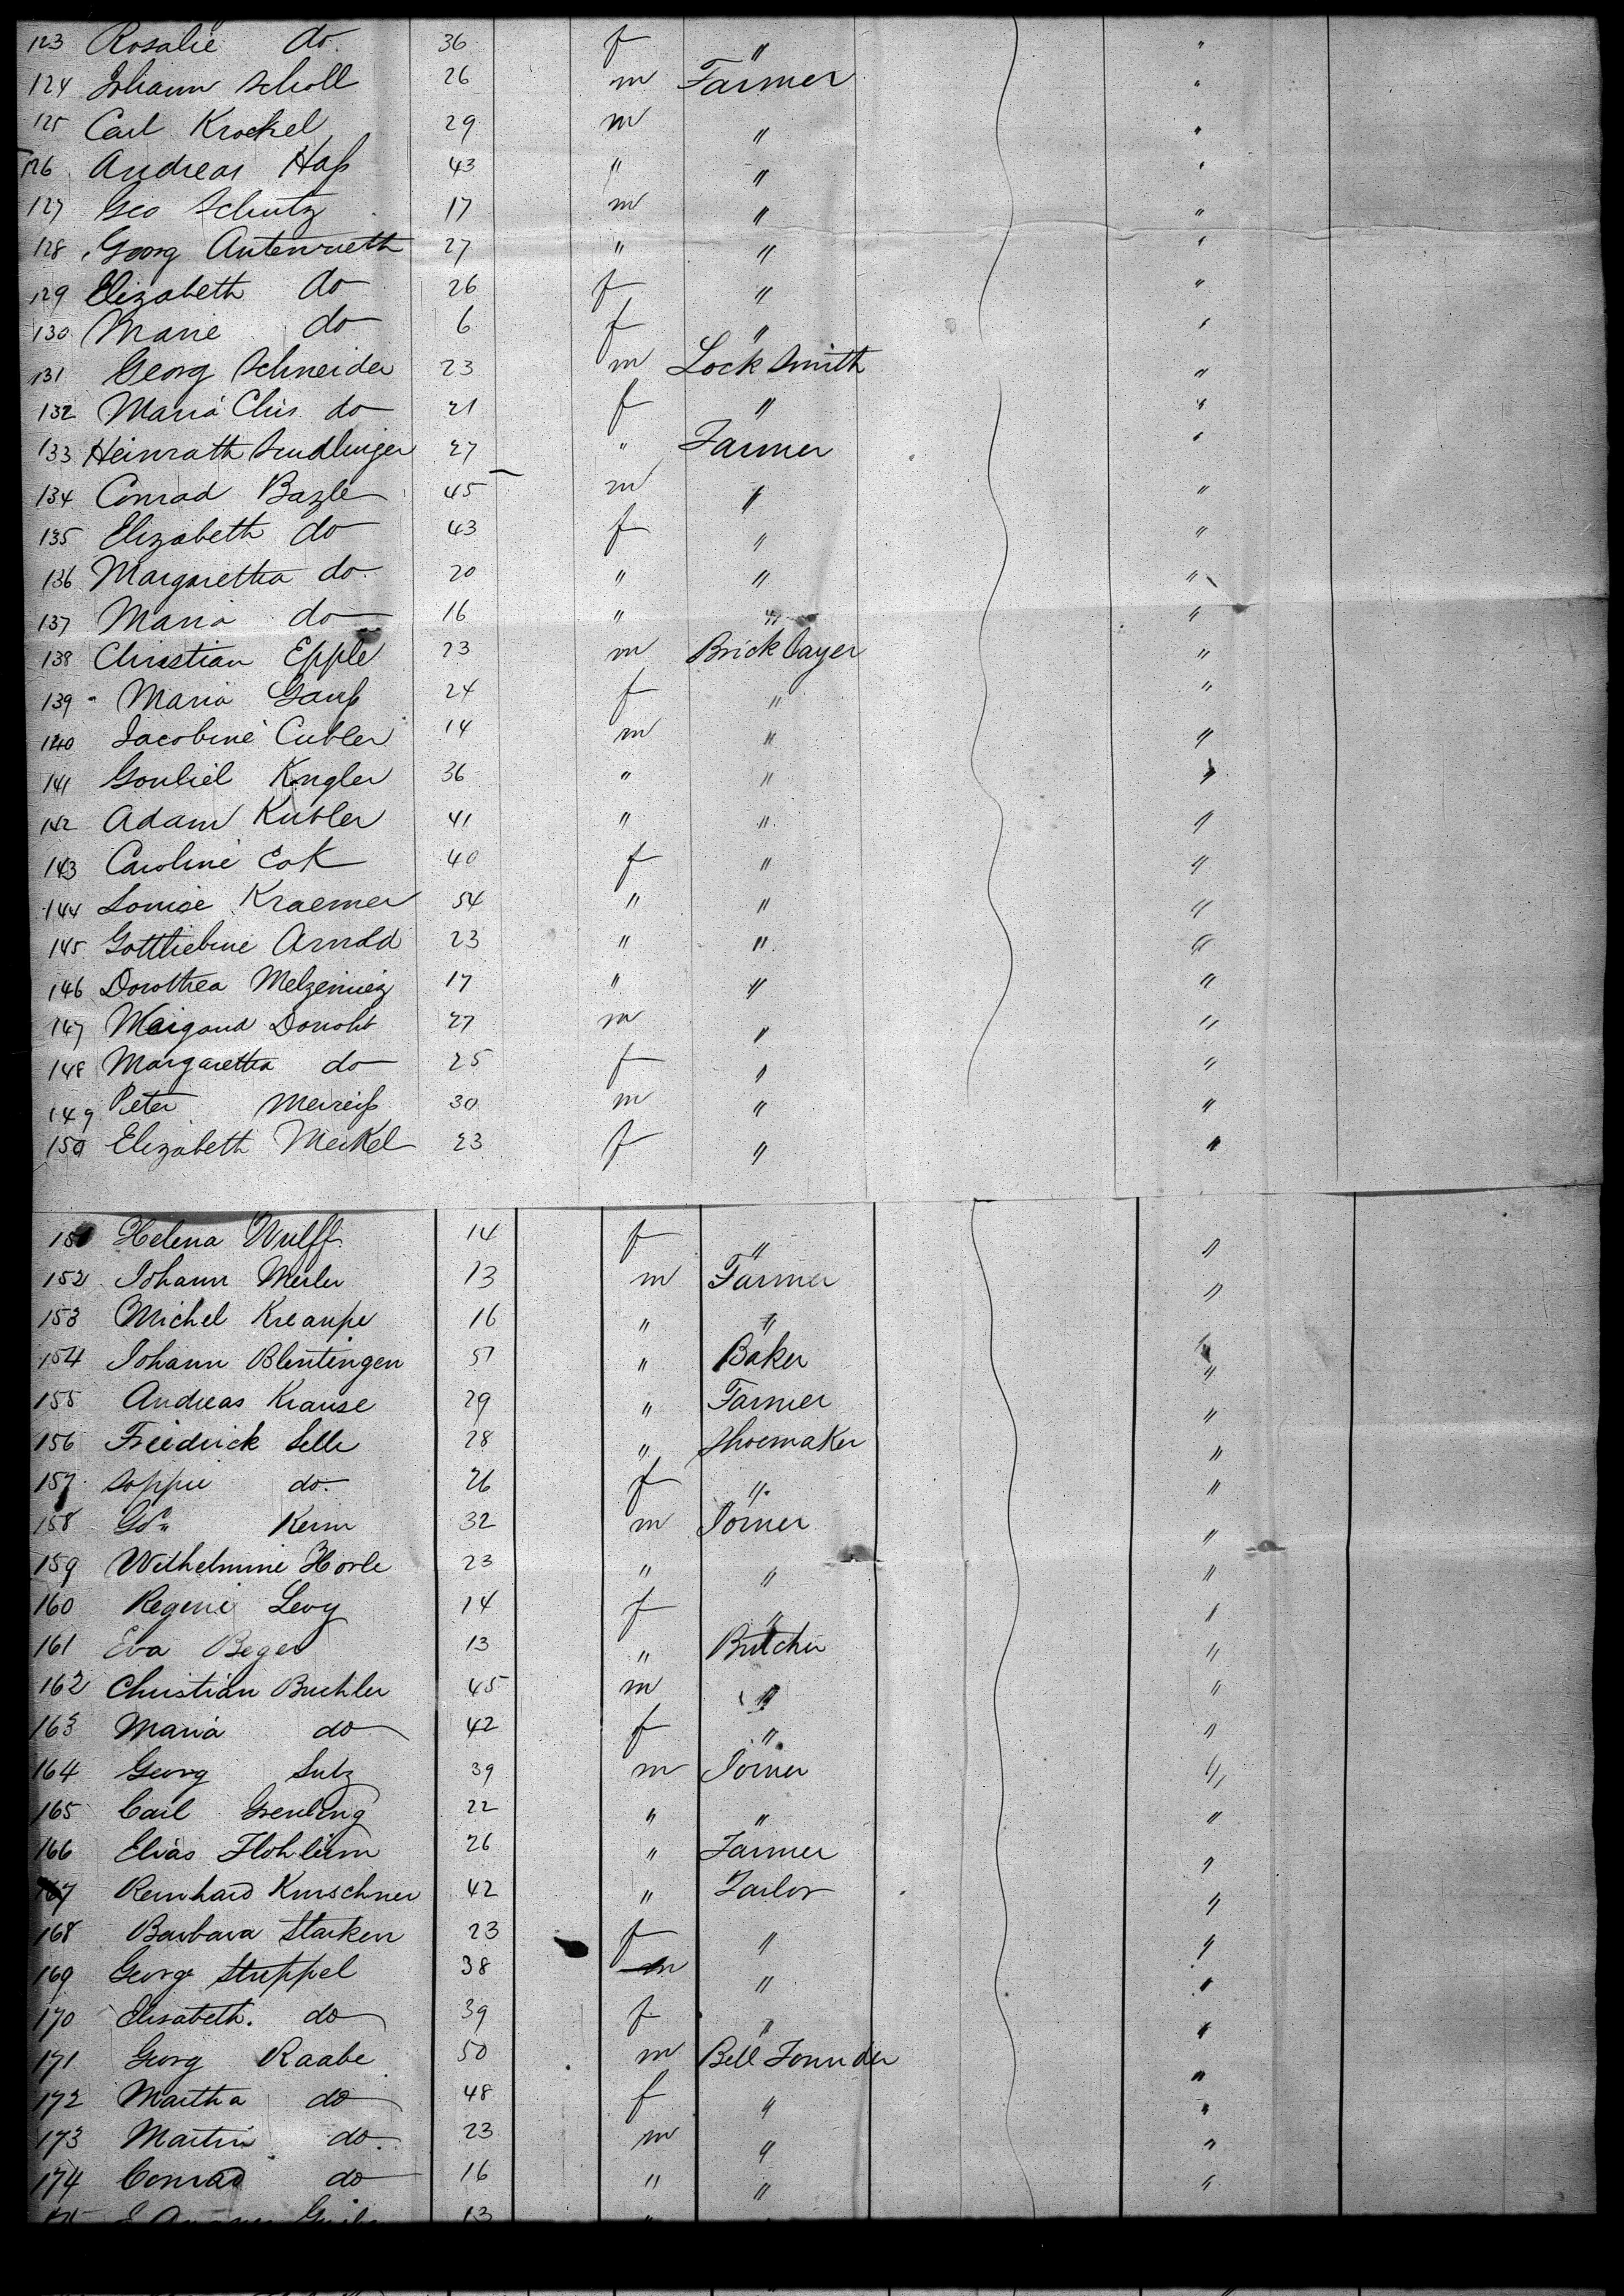 123 Rosalie do. 36 f " "
124 Johann Scholl 26 m Farmer "
125 Carl Krockel 29 m " "
126 Andreas Haß 43 " " "
127 Geo Schutz 17 m " "
128 Georg Autenrieth 27 " " "
129 Elizabeth do 26 f " "
130 Marie do 6 f " "
131 Georg Schneider 23 m Lock Smith "
132 Maria Chis. do 21 f " "
133 Heinrath Sendlinger 27 " Farmer "
134 Conrad Bazle 45 m " "
135 Elizabeth do 43 f " "
136 Margaretha do. 20 " " "
137 Maria do 16 " " "
138 Christian Epple 23 m Bricklayer "
139 Maria Gauß 24 f " "
140 Jacobine Cubler 14 m " "
141 Kugler 36 " " "
142 Adam Kubler 41 " " "
143 Caroline 40 f " "
144 Louise Kraemer 54 " " "
145 Gottliebine Arnold 23 " " "
146 Dorothea 17 " " "
147 27 m " "
148 Margaretha do 25 f " "
149 Peter 30 m " "
150 Elizabeth Merkel 23 f " "
151 Helena Wulff 14 f " "
152 Johann 13 m Farmer "
153 Michel Kreanpe 16 " " "
154 Johann Blentingen 57 " Baker "
155 Andreas Krause 29 " Farmer "
156 Friedrick Selle 28 " Shoemaker "
157 Soppie do. 26 f " "
158 Kern 32 m Joiner "
159 Wilhelmine Horle 23 " " "
160 Regine Levy 14 f " "
161 Eva Beger 13 " Butcher "
162 Christian Buchler 45 m " "
163 Maria do 42 f " "
164 Georg Lutz 39 m Joiner "
165 Carl Grenling 22 " " "
166 Elias 26 " Farmer "
167 Reinhard Kurschner 42 " Tailor "
168 Barbara Starken 23 f " "
169 George Stuppel 38 m " "
170 Elisabeth. do 39 f " "
171 Georg Raabe 50 m Bell Founder "
172 Martha do 48 f " "
173 Martin do. 23 m " "
174 Conrad do 16 " " "
13